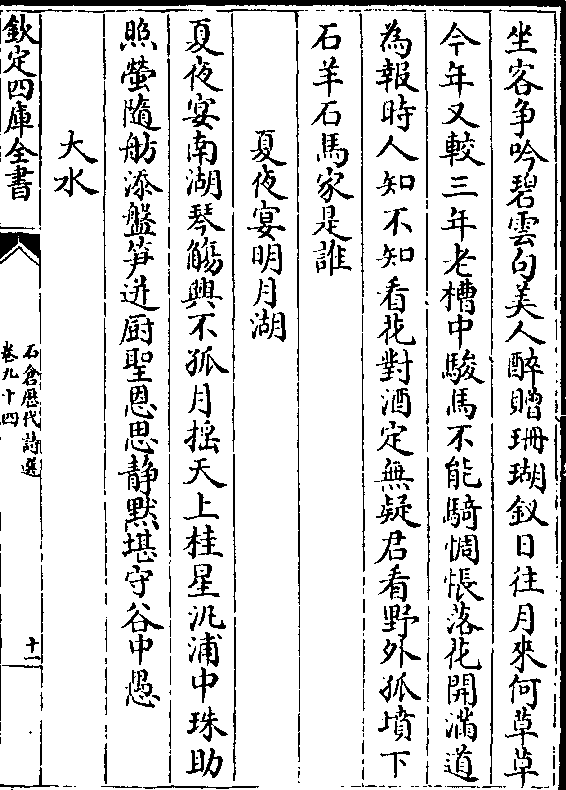 坐客争吟碧雲句美人醉贈珊瑚釵日往月來何草草
今年又較三年老槽中駿馬不能騎惆悵落花開滿道
為報時人知不知看花對酒定無疑君看野外孤墳下
石羊石馬家是誰
夏夜宴明月湖
夏夜宴南湖琴觴興不孤月揺天上桂星汎浦中珠助
照螢隨舫添盤笋迸厨聖恩思静黙堪守谷中愚
大水
欽定四庫全書
石倉歴代詩選
卷九十四
十一